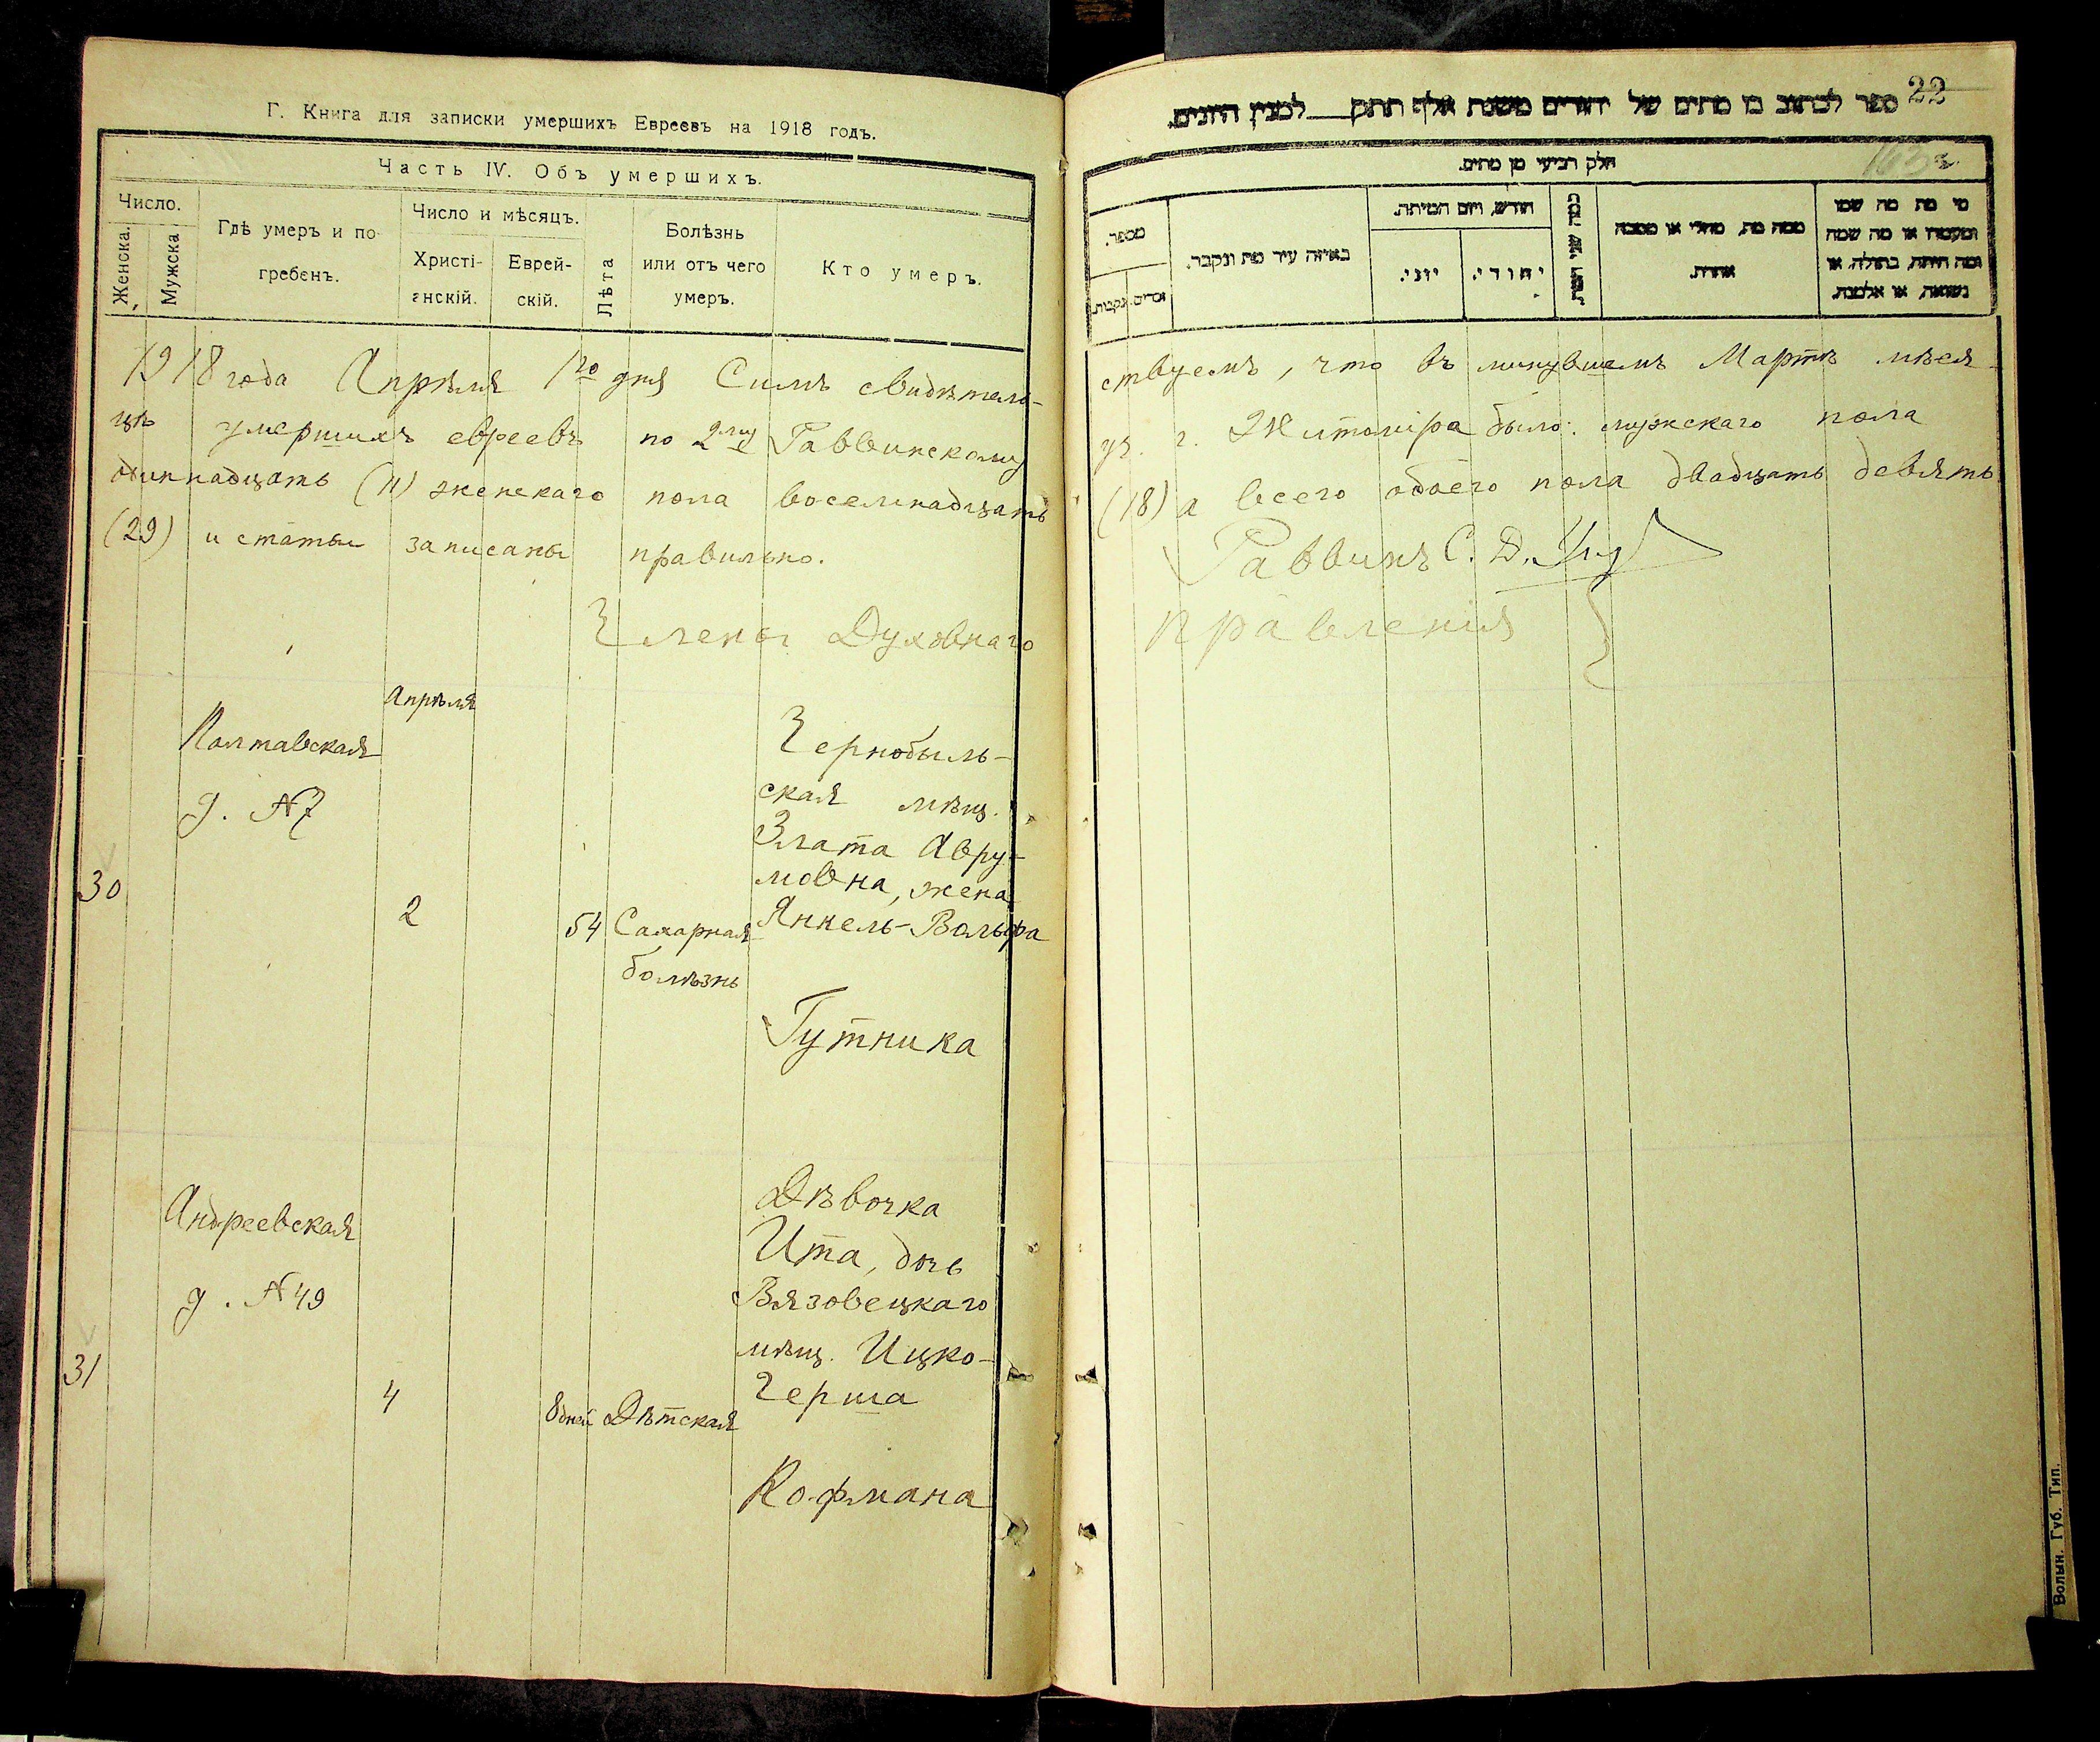 Г. Книга для записки умершихъ Евреевъ на 1918 годъ.
Часть IV. Объ умершихъ.
Число.
Женска.
Мужска
Гдѣ умеръ и по-
гребенъ.
Число и мѣсяцъ.
Христі-
анскій.
Еврей-
скій.
Лѣта
Болѣзнь
или отъ чего
умеръ.
Кто умеръ.
1918 года Апрѣля 1го дня Симъ свидѣтель-
цѣ умершихъ евреевъ по 2му Раввинскому
одиннадцать (11) женскаго пола восемнадцать
(29) и статьи записаны правильно.
Члены Духовнаго
Апрѣля
Полтавская
д. №7
30
2
54
Сахарная
болѣзнь
Чернобыль-
ская мѣщ.
Злата Авру-
мовна, жена
Янкель-Вольфа
Гутника
Андреевская
д. №49
31
4
8 дней
Дѣтская
Дѣвочка
Ита, дочь
Вязовецкаго
мѣщ. Ицко-
Герша
Кофмана
22
ספר לכתוב בו מתים של יהודים משנת אלף תתק למנין היונים.
חלק רביעי מן מתים.
מספר.
נקבות.
זכרים.
באיזה עיר מת ונקבר.
חודש, ויום המיתה.
יוני.
יהודי.
כמה שני המת.
ממה מת, מחלי או מסבה
אחרת.
מי מת מה שמו
ומעמדו או מה שמה
ומה היתה, בתולה, או
נשואה, או אלמנה.
ствуемъ, что въ минувшемъ Мартѣ мѣся-
уч. г. Житоміра было: мужскаго пола
(18) а всего обоего пола двадцать девять
Раввинъ С. Д.
правленія
Волын. Губ. Тип.